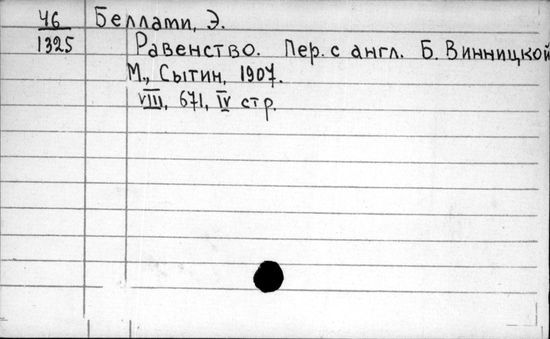 Ч6
1325
Беллами, Э.
Равенство. Пер. с англ. Б. Винницкой
М., Сытин, 1907.
VIII, 671, IV стр.